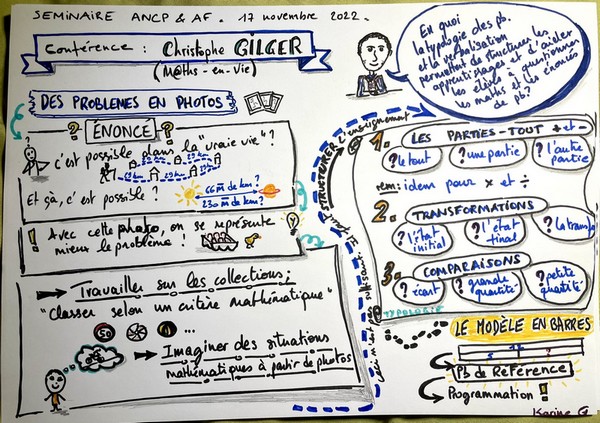 SEMINAIRE ANCP & AF. 17 novembre 2022.
Conférence : Christophe GILGER
(M@ths-en-vie)
En quoi
la typologie des pb.
et la verbalisation
permettent de structurer les
apprentissages et d'aider
les élèves à questionner
les maths et les énoncés
de pb?
DES PROBLEMES EN PHOTOS
? ÉNONCÉ ?
c'est possible dans la "vraie vie"?
Et çà, c'est possible?
66 m de km?
230 m de km?
! Avec cette photo, on se représente
mieux le problème!
Travailler sur les collections;
"Classer selon un critère mathématique"
50
...
Imaginer des situations
mathématiques à partir de photos
STRUCTURER l'enseignement
1. LES PARTIES-TOUT + et -
? le tout
? une partie
? l'autre
partie
rem: idem pour × et ÷
2. TRANSFORMATIONS
? l'état
initial
? l'état
final
? la transfo
3. COMPARAISONS
? écart
? grande
quantité
? petite
quantité
TYPOLOGIE
LE MODÈLE EN BARRES
Pb de Référence
Programmation !
Karine G